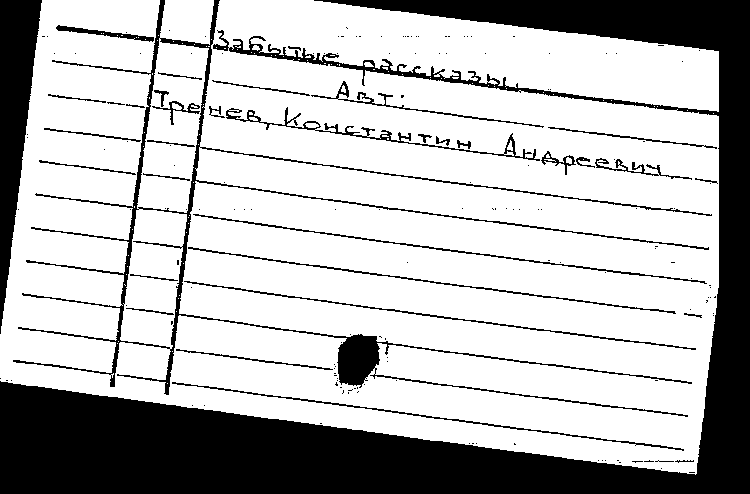 Забытые рассказы.
Авт:
Тренев, Константин Андреевич